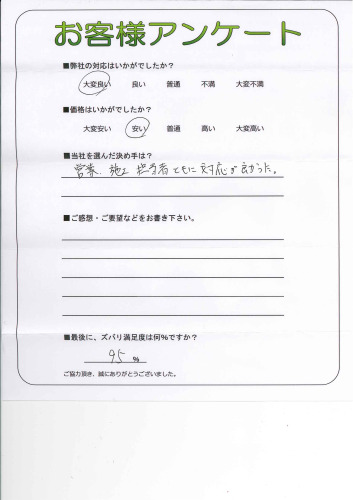 お客様アンケート
■弊社の対応はいかがでしたか？
大変良い 良い 普通 不満 大変不満
■価格はいかがでしたか？
大変安い 安い 普通 高い 大変高い
■当社を選んだ決め手は？
営業、施工 担当者ともに対応が良かった。
■ご感想・ご要望などをお書き下さい。
■最後に、ズバリ満足度は何％ですか？
95 ％
ご協力頂き、誠にありがとうございました。